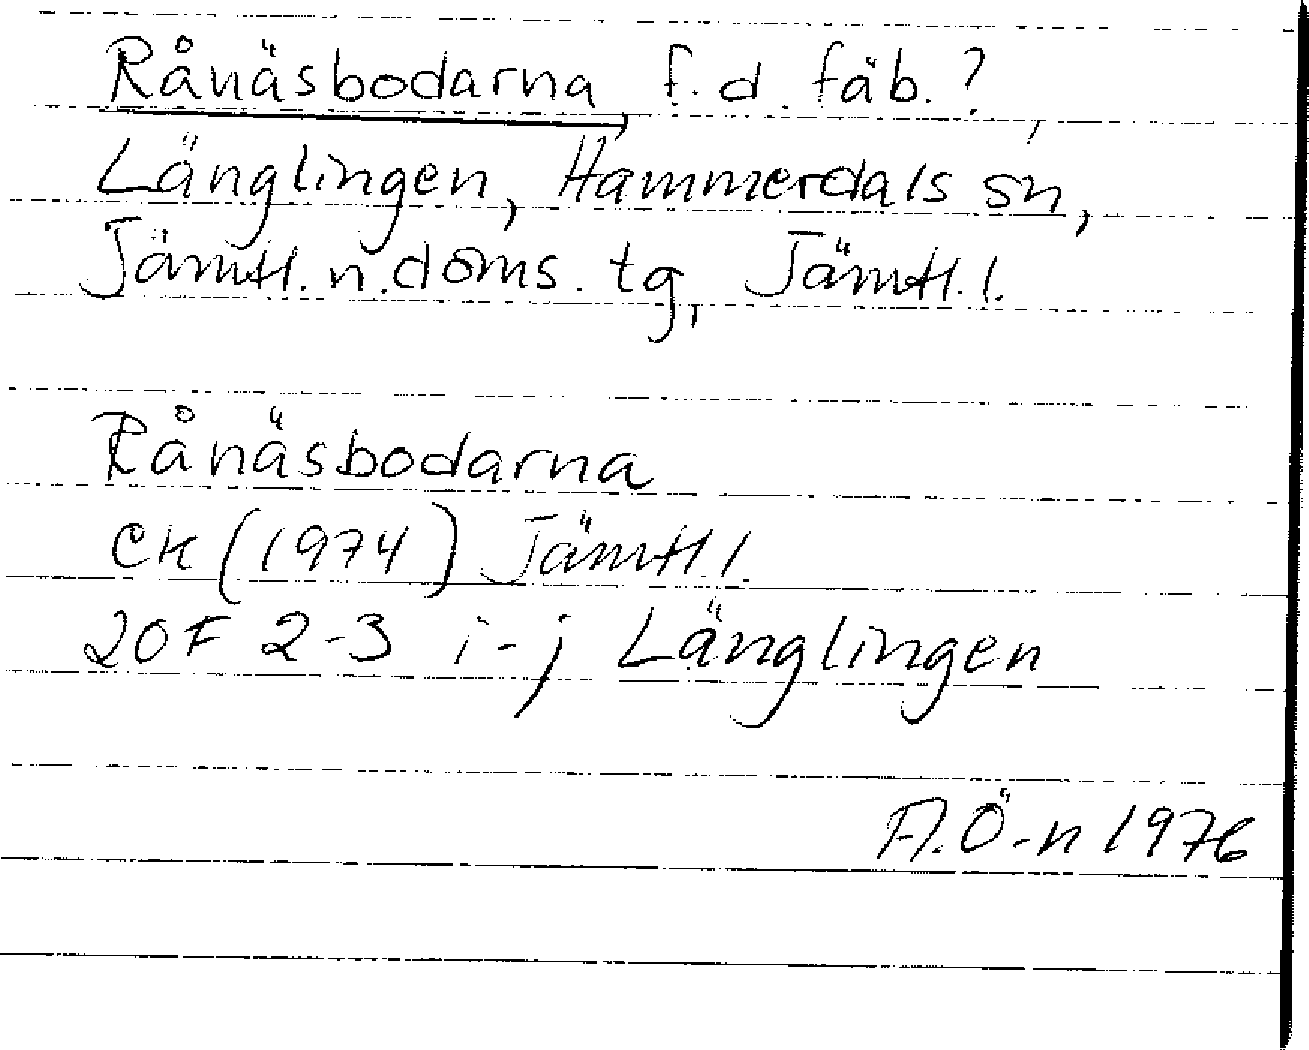 Rånäsbodarna, f.d. fäb.?,
Länglingen, Hammerdals sn,
Jämtl. n. doms. tg, Jämtl. l.
Rånäsbodarna
EK (1974) Jämtl l.
20F 2-3 i-j Länglingen
A. Ö-n 1976